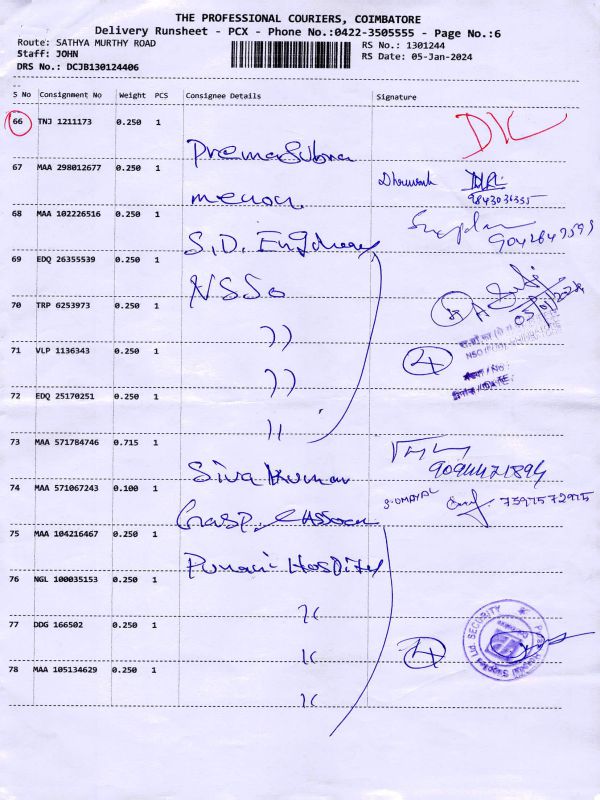 THE PROFESSIONAL COURIERS, COIMBATORE
Delivery Runsheet - PCX - Phone No.:0422-3505555 - Page No.:6
Route: SATHYA MURTHY ROAD
RS No.: 1301244
Staff: JOHN
RS Date: 05-Jan-2024
DRS No.: DCJB130124406
S No Consignment No Weight PCS Consignee Details Signature
66 TNJ 1211173 0.250 1
Prema Subra
67 MAA 298012677 0.250 1
menon
9843031355
68 MAA 102226516 0.250 1
S.D. Engineer
9042649599
69 EDQ 26355539 0.250 1
NSSO
05/01/2024
70 TRP 6253973 0.250 1
))
71 VLP 1136343 0.250 1
4
))
72 EDQ 25170251 0.250 1
11
73 MAA 571784746 0.715 1
Siva Kumar
9094471894
74 MAA 571067243 0.100 1
S.UMAYAL
7397572975
75 MAA 104216467 0.250 1
Hospital
76 NGL 100035153 0.250 1
77 DDG 166502 0.250 1
4
SECURITY
78 MAA 105134629 0.250 1